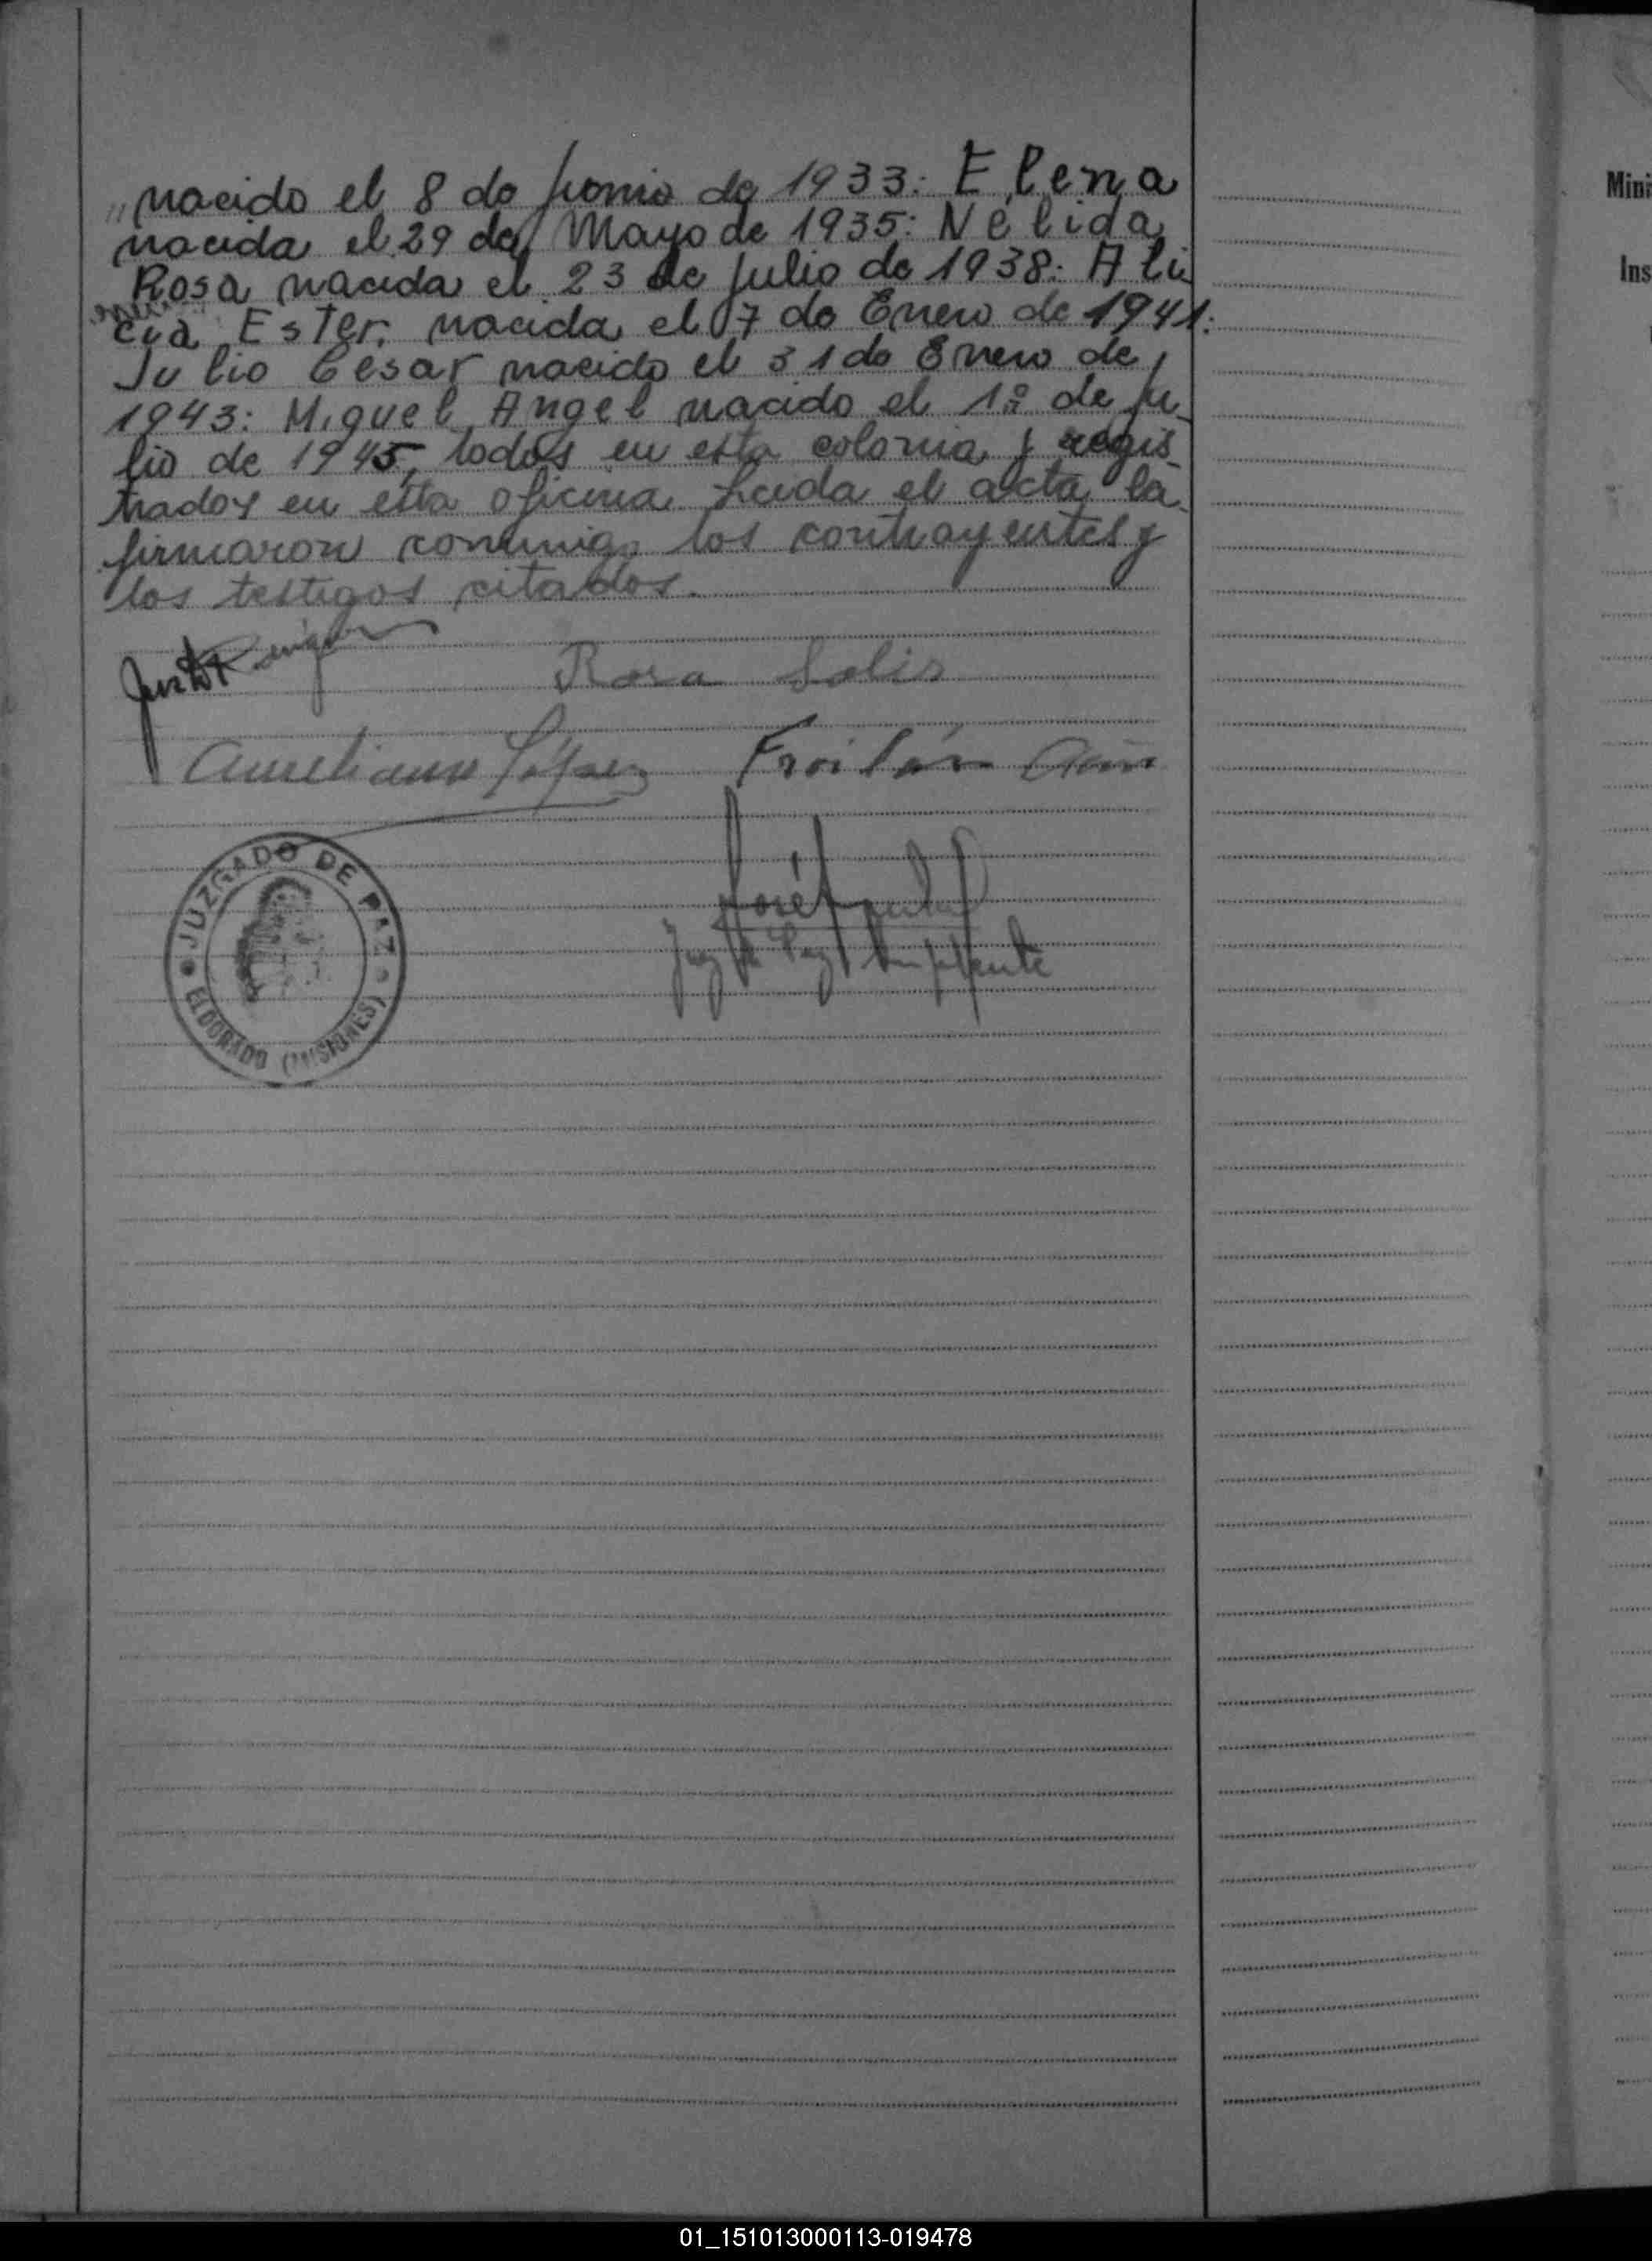 nacido el 8 de Junio de 1933: Elena
nacida el 29 de Mayo de 1935: Nélida
Rosa nacida el 23 de Julio de 1938: Ali
cia Ester, nacida el 7 de Enero de 1941:
Julio Cesar nacido el 31 de Enero de
1943: Miguel Angel nacido el 1º de Ju-
lio de 1945, todos en esta colonia y regis-
trados en esta oficina. Leida el acta la
firmaron conmigo los contrayentes y
los testigos citados.
Rosa Solis
Aureliano López Froilán
José
Juez de Paz Suplente
JUZGADO DE PAZ
ELDORADO (MISIONES)
Mini
Ins
01_151013000113-019478